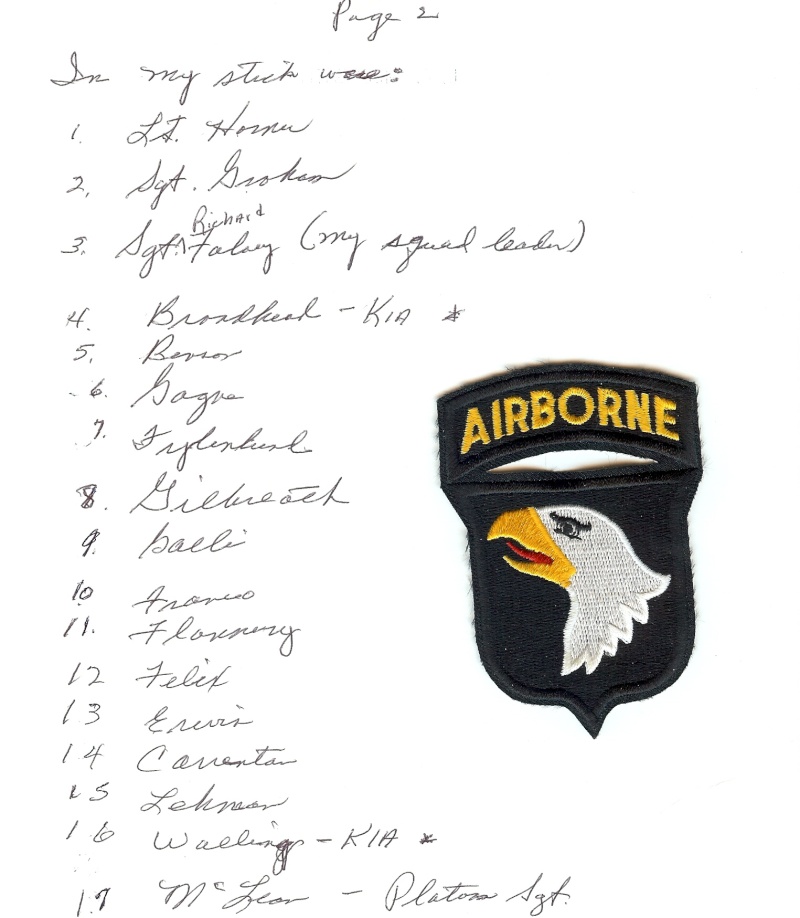 Page 2
In my stick were:
1. Lt. Horner
2. Sgt. Graham
3. Sgt. Richard Falvey (my squad leader)
4. Broadhead - KIA *
5. Benson
6. Gagne
7.
8. Gilbreath
9. Galli
10 Franco
11. Flannery
12 Felix
13 Erwin
14 Carrentan
15 Lehman
16 Wallings - KIA *
17 McLean - Platoon Sgt.
AIRBORNE